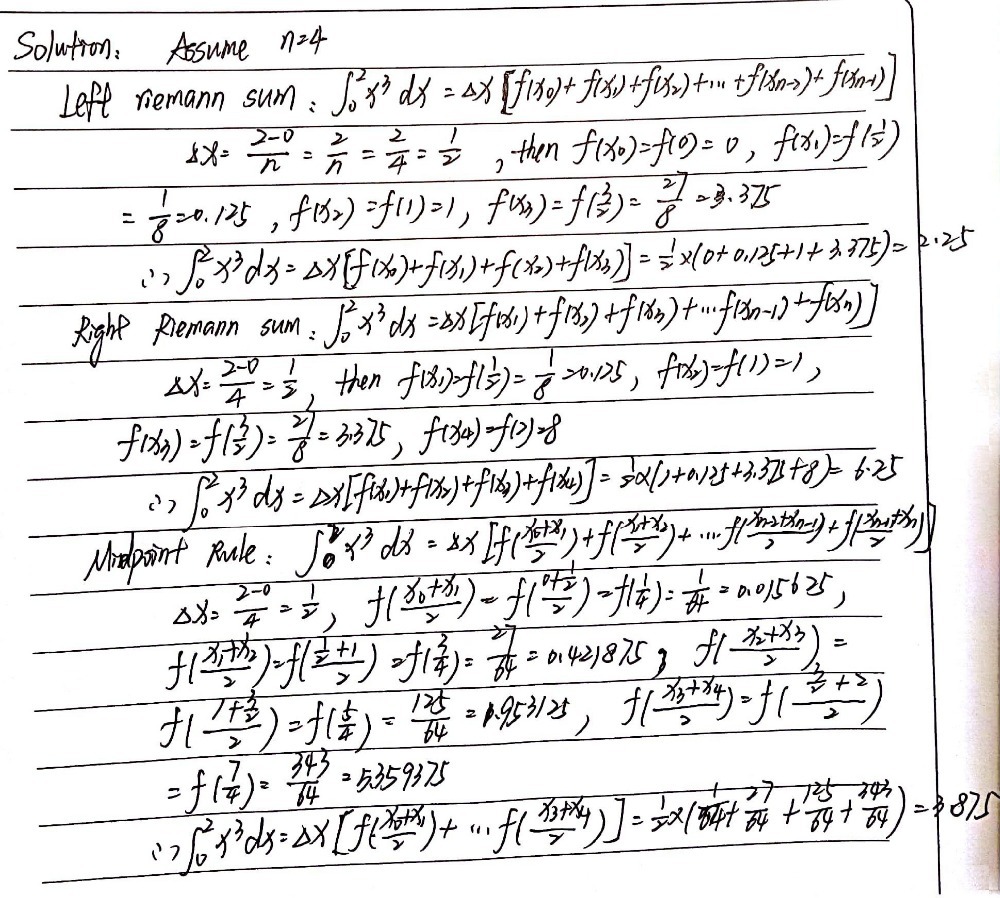 Solution: Assume n=4
Left riemann sum: ∫₀² x³ dx = Δx [f(x₀)+f(x₁)+f(x₂)+...+f(xₙ₋₂)+f(xₙ₋₁)]
Δx = (2-0)/n = 2/n = 2/4 = 1/2, then f(x₀)=f(0)=0, f(x₁)=f(1/2)
= 1/8 = 0.125, f(x₂)=f(1)=1, f(x₃)=f(3/2)= 27/8 = 3.375
∴ ∫₀² x³ dx = Δx[f(x₀)+f(x₁)+f(x₂)+f(x₃)] = 1/2 × (0+0.125+1+3.375) = 2.25
Right Riemann sum: ∫₀² x³ dx = Δx[f(x₁)+f(x₂)+f(x₃)+...f(xₙ₋₁)+f(xₙ)]
Δx = (2-0)/4 = 1/2, then f(x₁)=f(1/2)= 1/8 = 0.125, f(x₂)=f(1)=1,
f(x₃)=f(3/2)= 27/8 = 3.375, f(x₄)=f(2)=8
∴ ∫₀² x³ dx = Δx[f(x₁)+f(x₂)+f(x₃)+f(x₄)] = 1/2 × (1+0.125+3.375+8) = 6.25
Midpoint Rule: ∫₀² x³ dx = Δx [f((x₀+x₁)/2)+f((x₁+x₂)/2)+...f((xₙ₋₂+xₙ₋₁)/2)+f((xₙ₋₁+xₙ)/2)]
Δx = (2-0)/4 = 1/2, f((x₀+x₁)/2) = f((0+1/2)/2) = f(1/4) = 1/64 = 0.015625,
f((x₁+x₂)/2) = f((1/2+1)/2) = f(3/4) = 27/64 = 0.421875, f((x₂+x₃)/2) =
f((1+3/2)/2) = f(5/4) = 125/64 = 1.953125, f((x₃+x₄)/2) = f((3/2+2)/2)
= f(7/4) = 343/64 = 5.359375
∴ ∫₀² x³ dx = Δx [f((x₀+x₁)/2)+...f((x₃+x₄)/2)] = 1/2 × (1/64+27/64+125/64+343/64) = 3.875